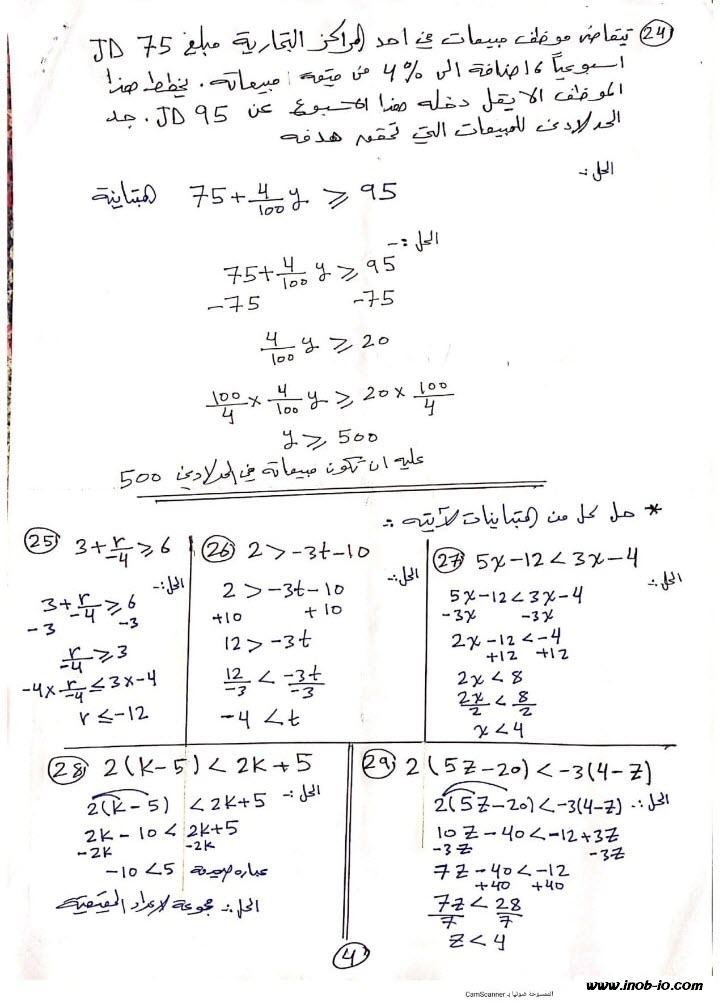 24 يتقاضى موظف مبيعات في احد المراكز التجارية مبلغ JD 75
اسبوعياً، اضافة الى 4% من قيمة مبيعاته. يخطط هذا
الموظف الا يقل دخله هذا الاسبوع عن JD 95. جد
الحد الادنى للمبيعات التي تحقق هدفه
الحل:
المتباينة 75 + 4/100 y ≥ 95
الحل:-
75 + 4/100 y ≥ 95
-75 -75
4/100 y ≥ 20
100/4 × 4/100 y ≥ 20 × 100/4
y ≥ 500
عليه ان تكون مبيعاته في الحد الادنى 500
* حل كل من المتباينات الآتية :-
25 3 + r/-4 ≥ 6
الحل:-
3 + r/-4 ≥ 6
-3 -3
r/-4 ≥ 3
-4 × r/-4 ≤ 3 × -4
r ≤ -12
26 2 > -3t - 10
الحل:-
2 > -3t - 10
+10 +10
12 > -3t
12/-3 < -3t/-3
-4 < t
27 5x - 12 < 3x - 4
الحل:-
5x - 12 < 3x - 4
-3x -3x
2x - 12 < -4
+12 +12
2x < 8
2x/2 < 8/2
x < 4
28 2(k - 5) < 2k + 5
الحل:-
2(k - 5) < 2k + 5
2k - 10 < 2k + 5
-2k -2k
-10 < 5 عبارة صحيحة
الحل:- مجموعة الاعداد الحقيقية
29 2(5z - 20) < -3(4 - z)
2(5z - 20) < -3(4 - z) الحل:-
10z - 40 < -12 + 3z
-3z -3z
7z - 40 < -12
+40 +40
7z/7 < 28/7
z < 4
4
الممسوحة ضوئيا بـ CamScanner
www.inob-jo.com